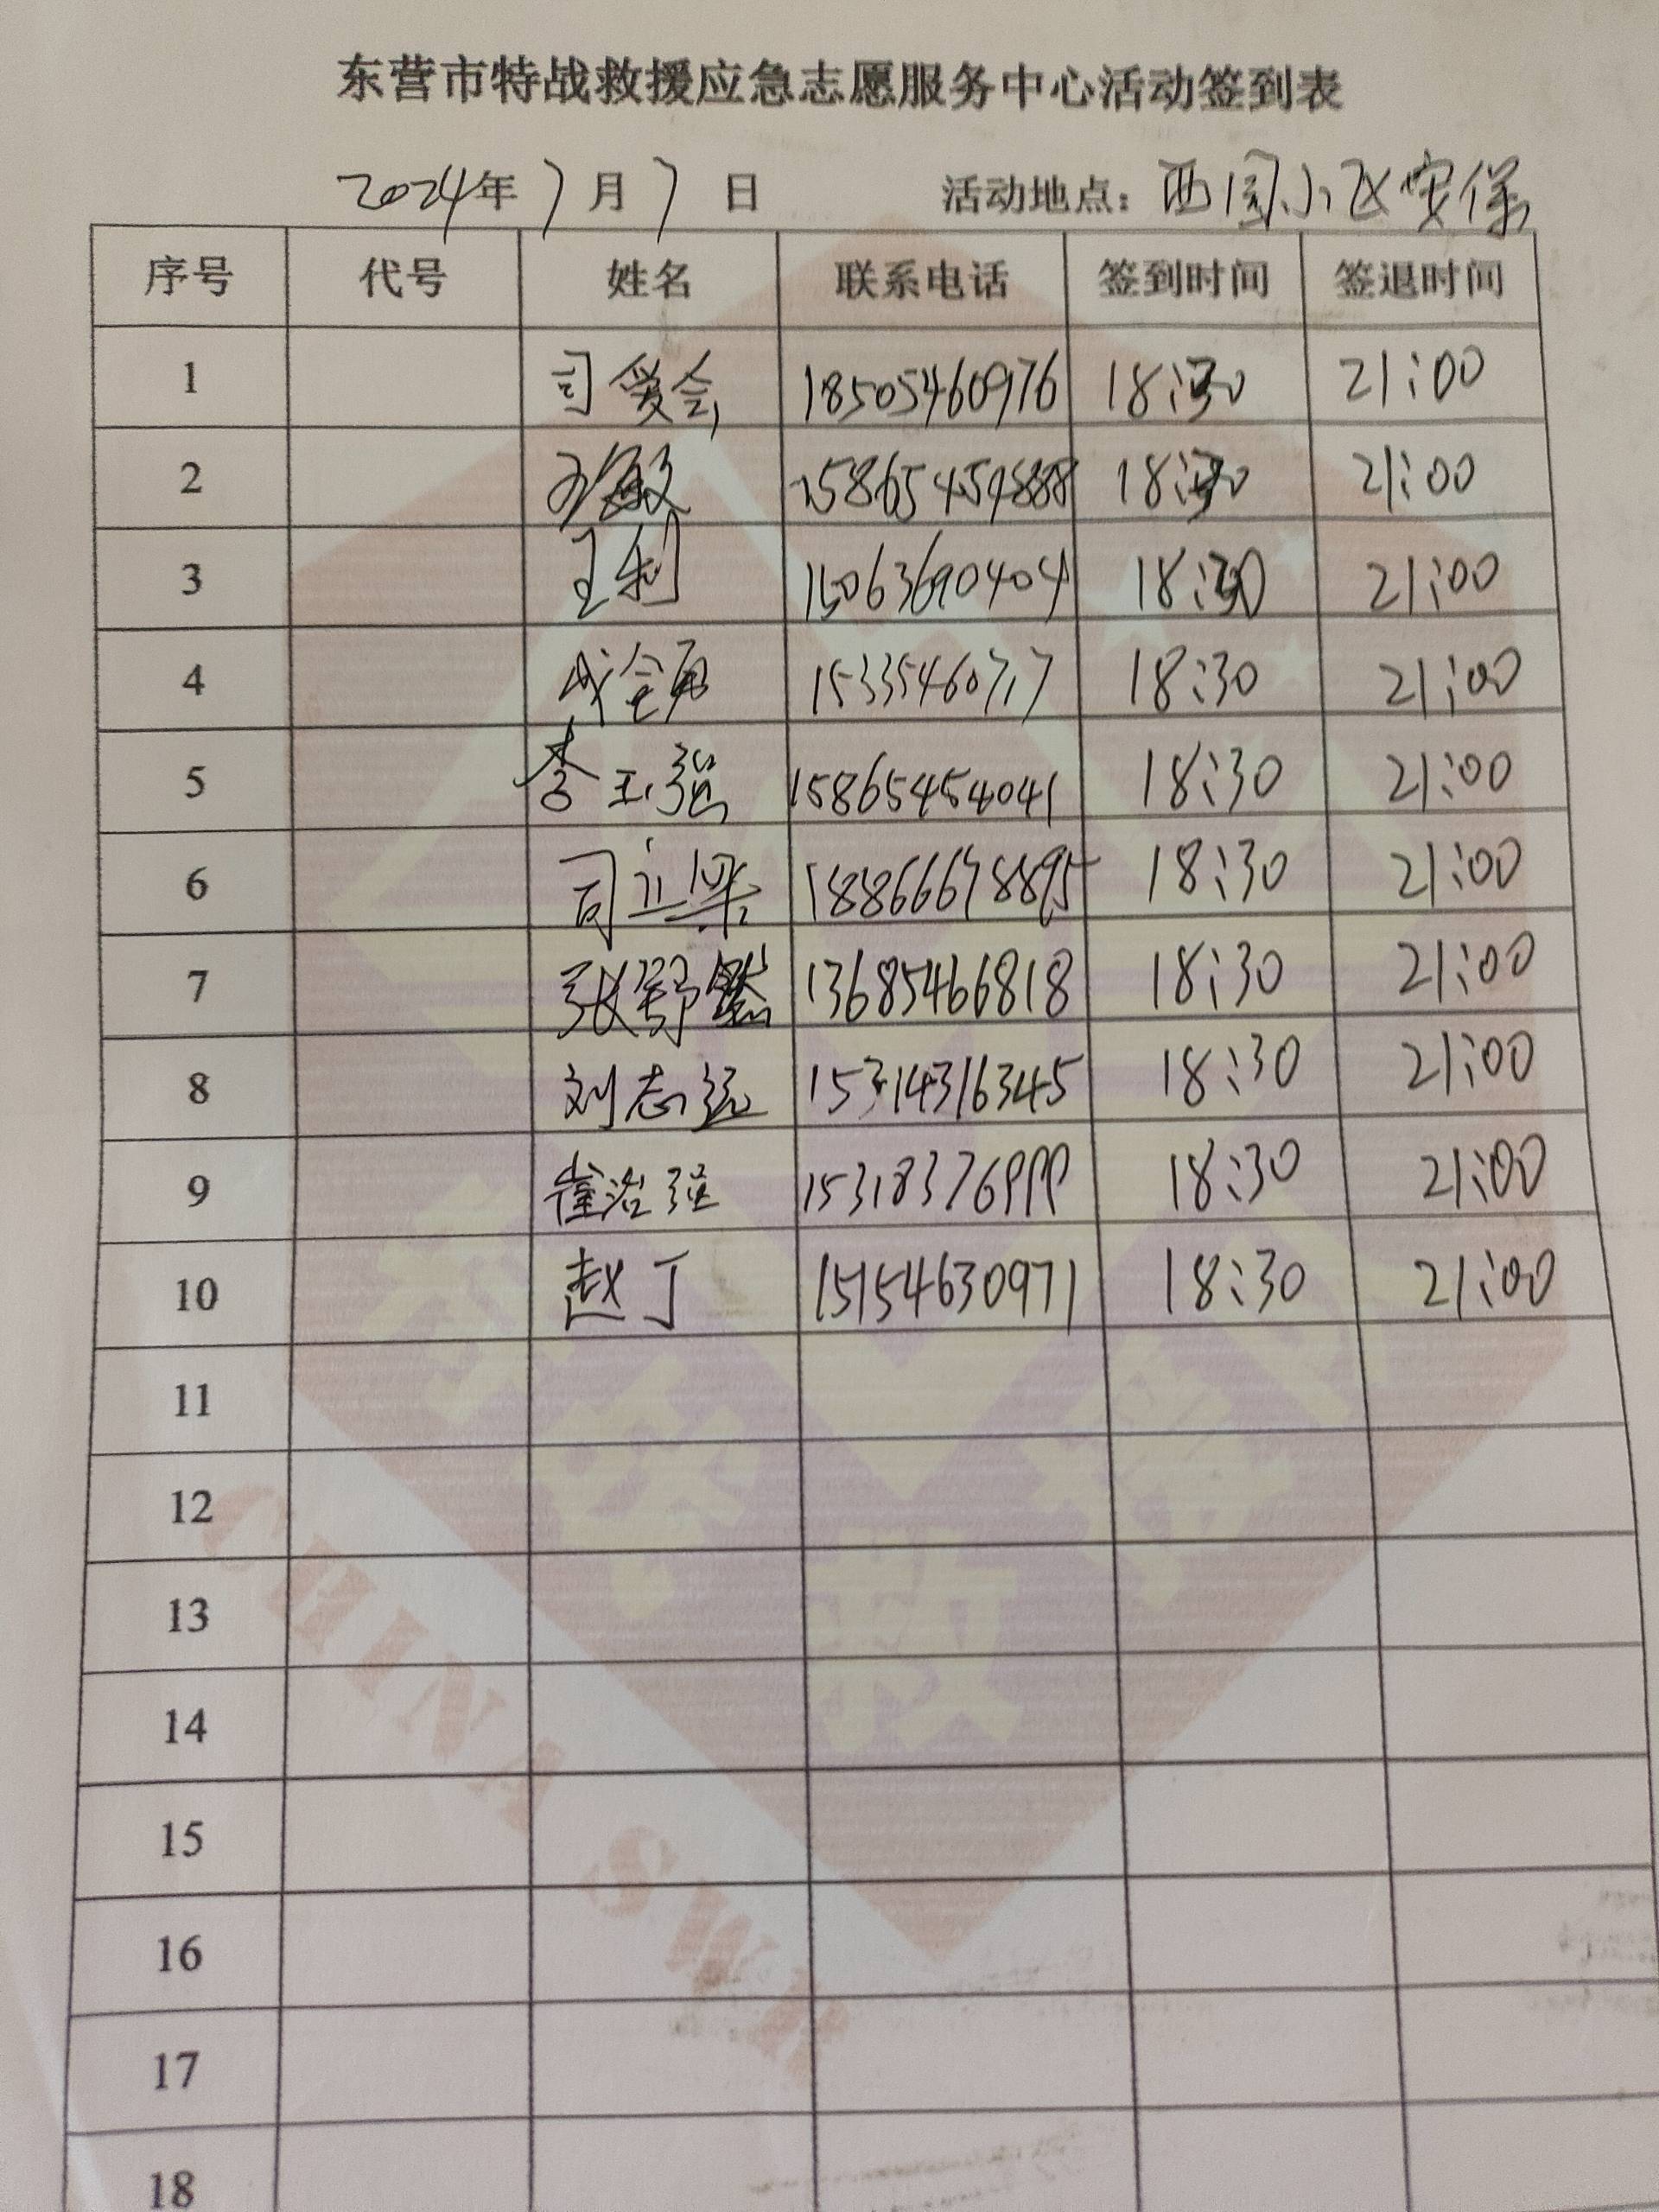 东营市特战救援应急志愿服务中心活动签到表
2024年7月7日 活动地点：西国小区安保
序号 代号 姓名 联系电话 签到时间 签退时间
1 司爱会 18505460976 18:30 21:00
2 15865459888 18:30 21:00
3 王利 15063690404 18:30 21:00
4 15335460717 18:30 21:00
5 李玉强 15865454041 18:30 21:00
6 司立梁 18866678895 18:30 21:00
7 张舒然 13685466818 18:30 21:00
8 刘志远 15314316345 18:30 21:00
9 崔洛瑄 15318376999 18:30 21:00
10 赵丁 15154630971 18:30 21:00
11
12
13
14
15
16
17
18
特战救援
CHINA SWR